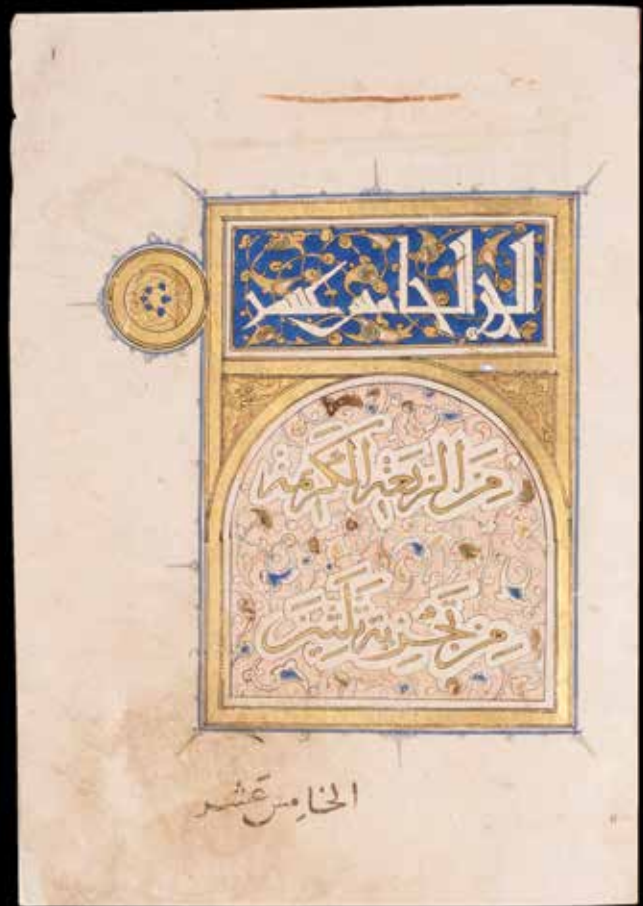 الجز الخامس عشر
من الربعة الكريمة
من تجزية ثلثين
الخامس عشر